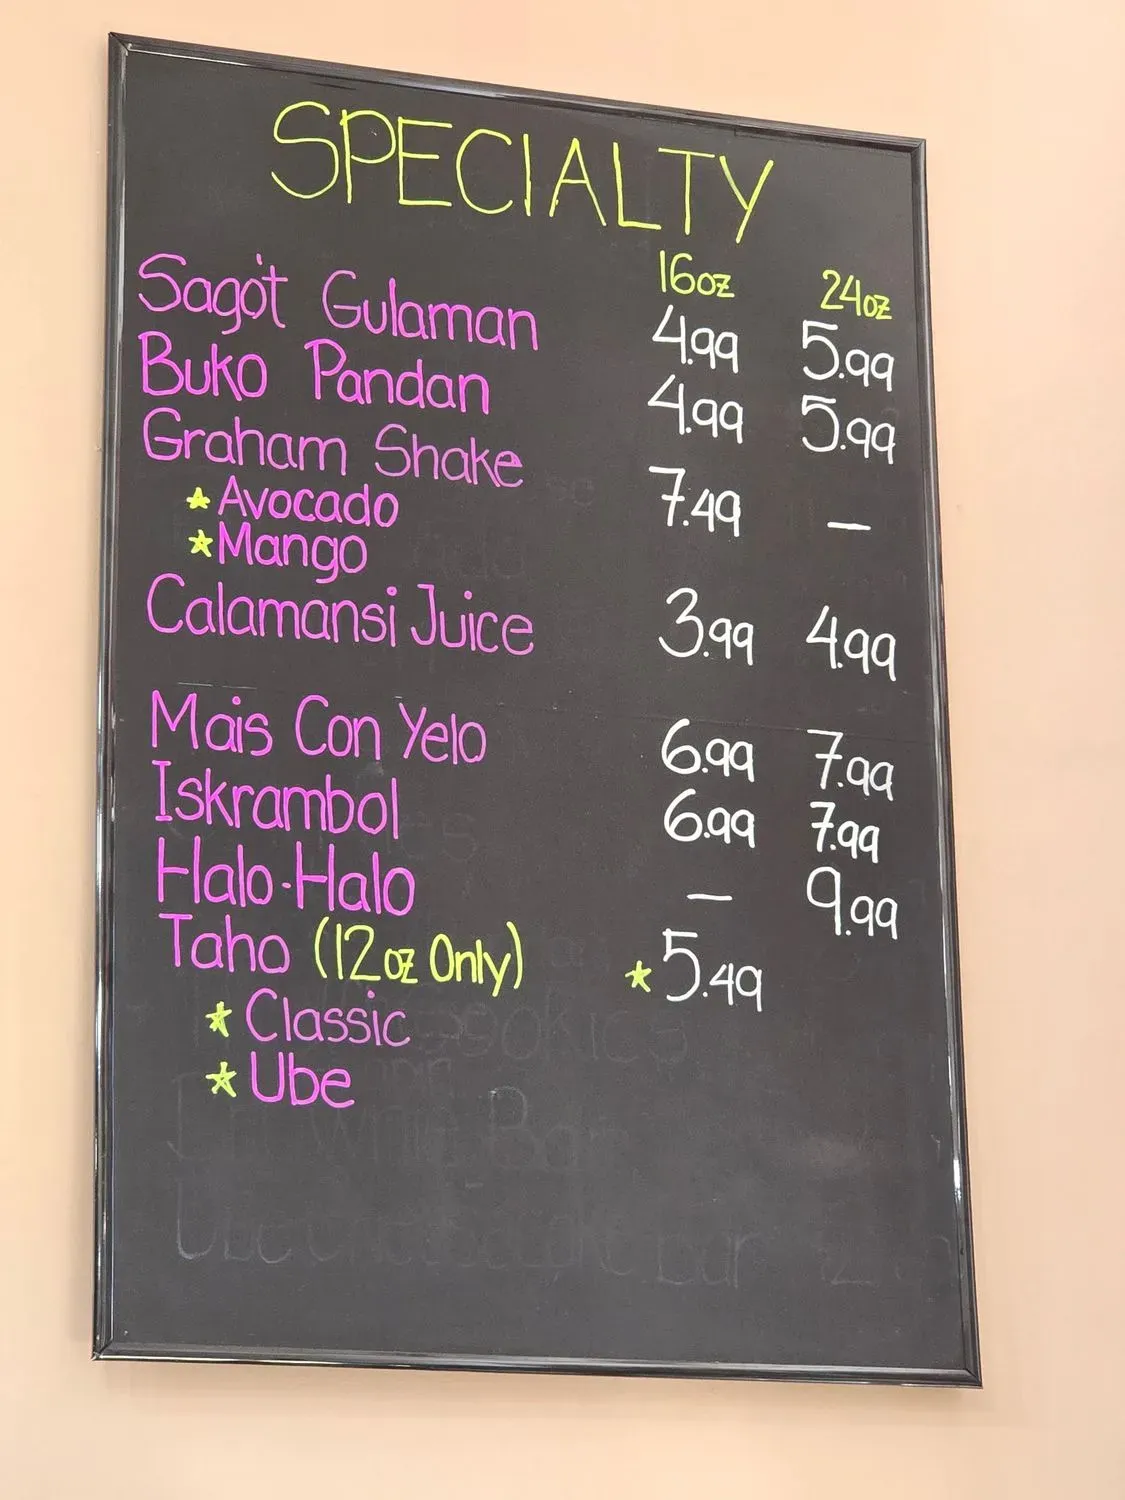 SPECIALTY
16oz 24oz
Sago't Gulaman 4.99 5.99
Buko Pandan 4.99 5.99
Graham Shake 7.49 —
★ Avocado
★ Mango
Calamansi Juice 3.99 4.99
Mais Con Yelo 6.99 7.99
Iskrambol 6.99 7.99
Halo-Halo — 9.99
Taho (12oz Only) ★ 5.49
★ Classic
★ Ube